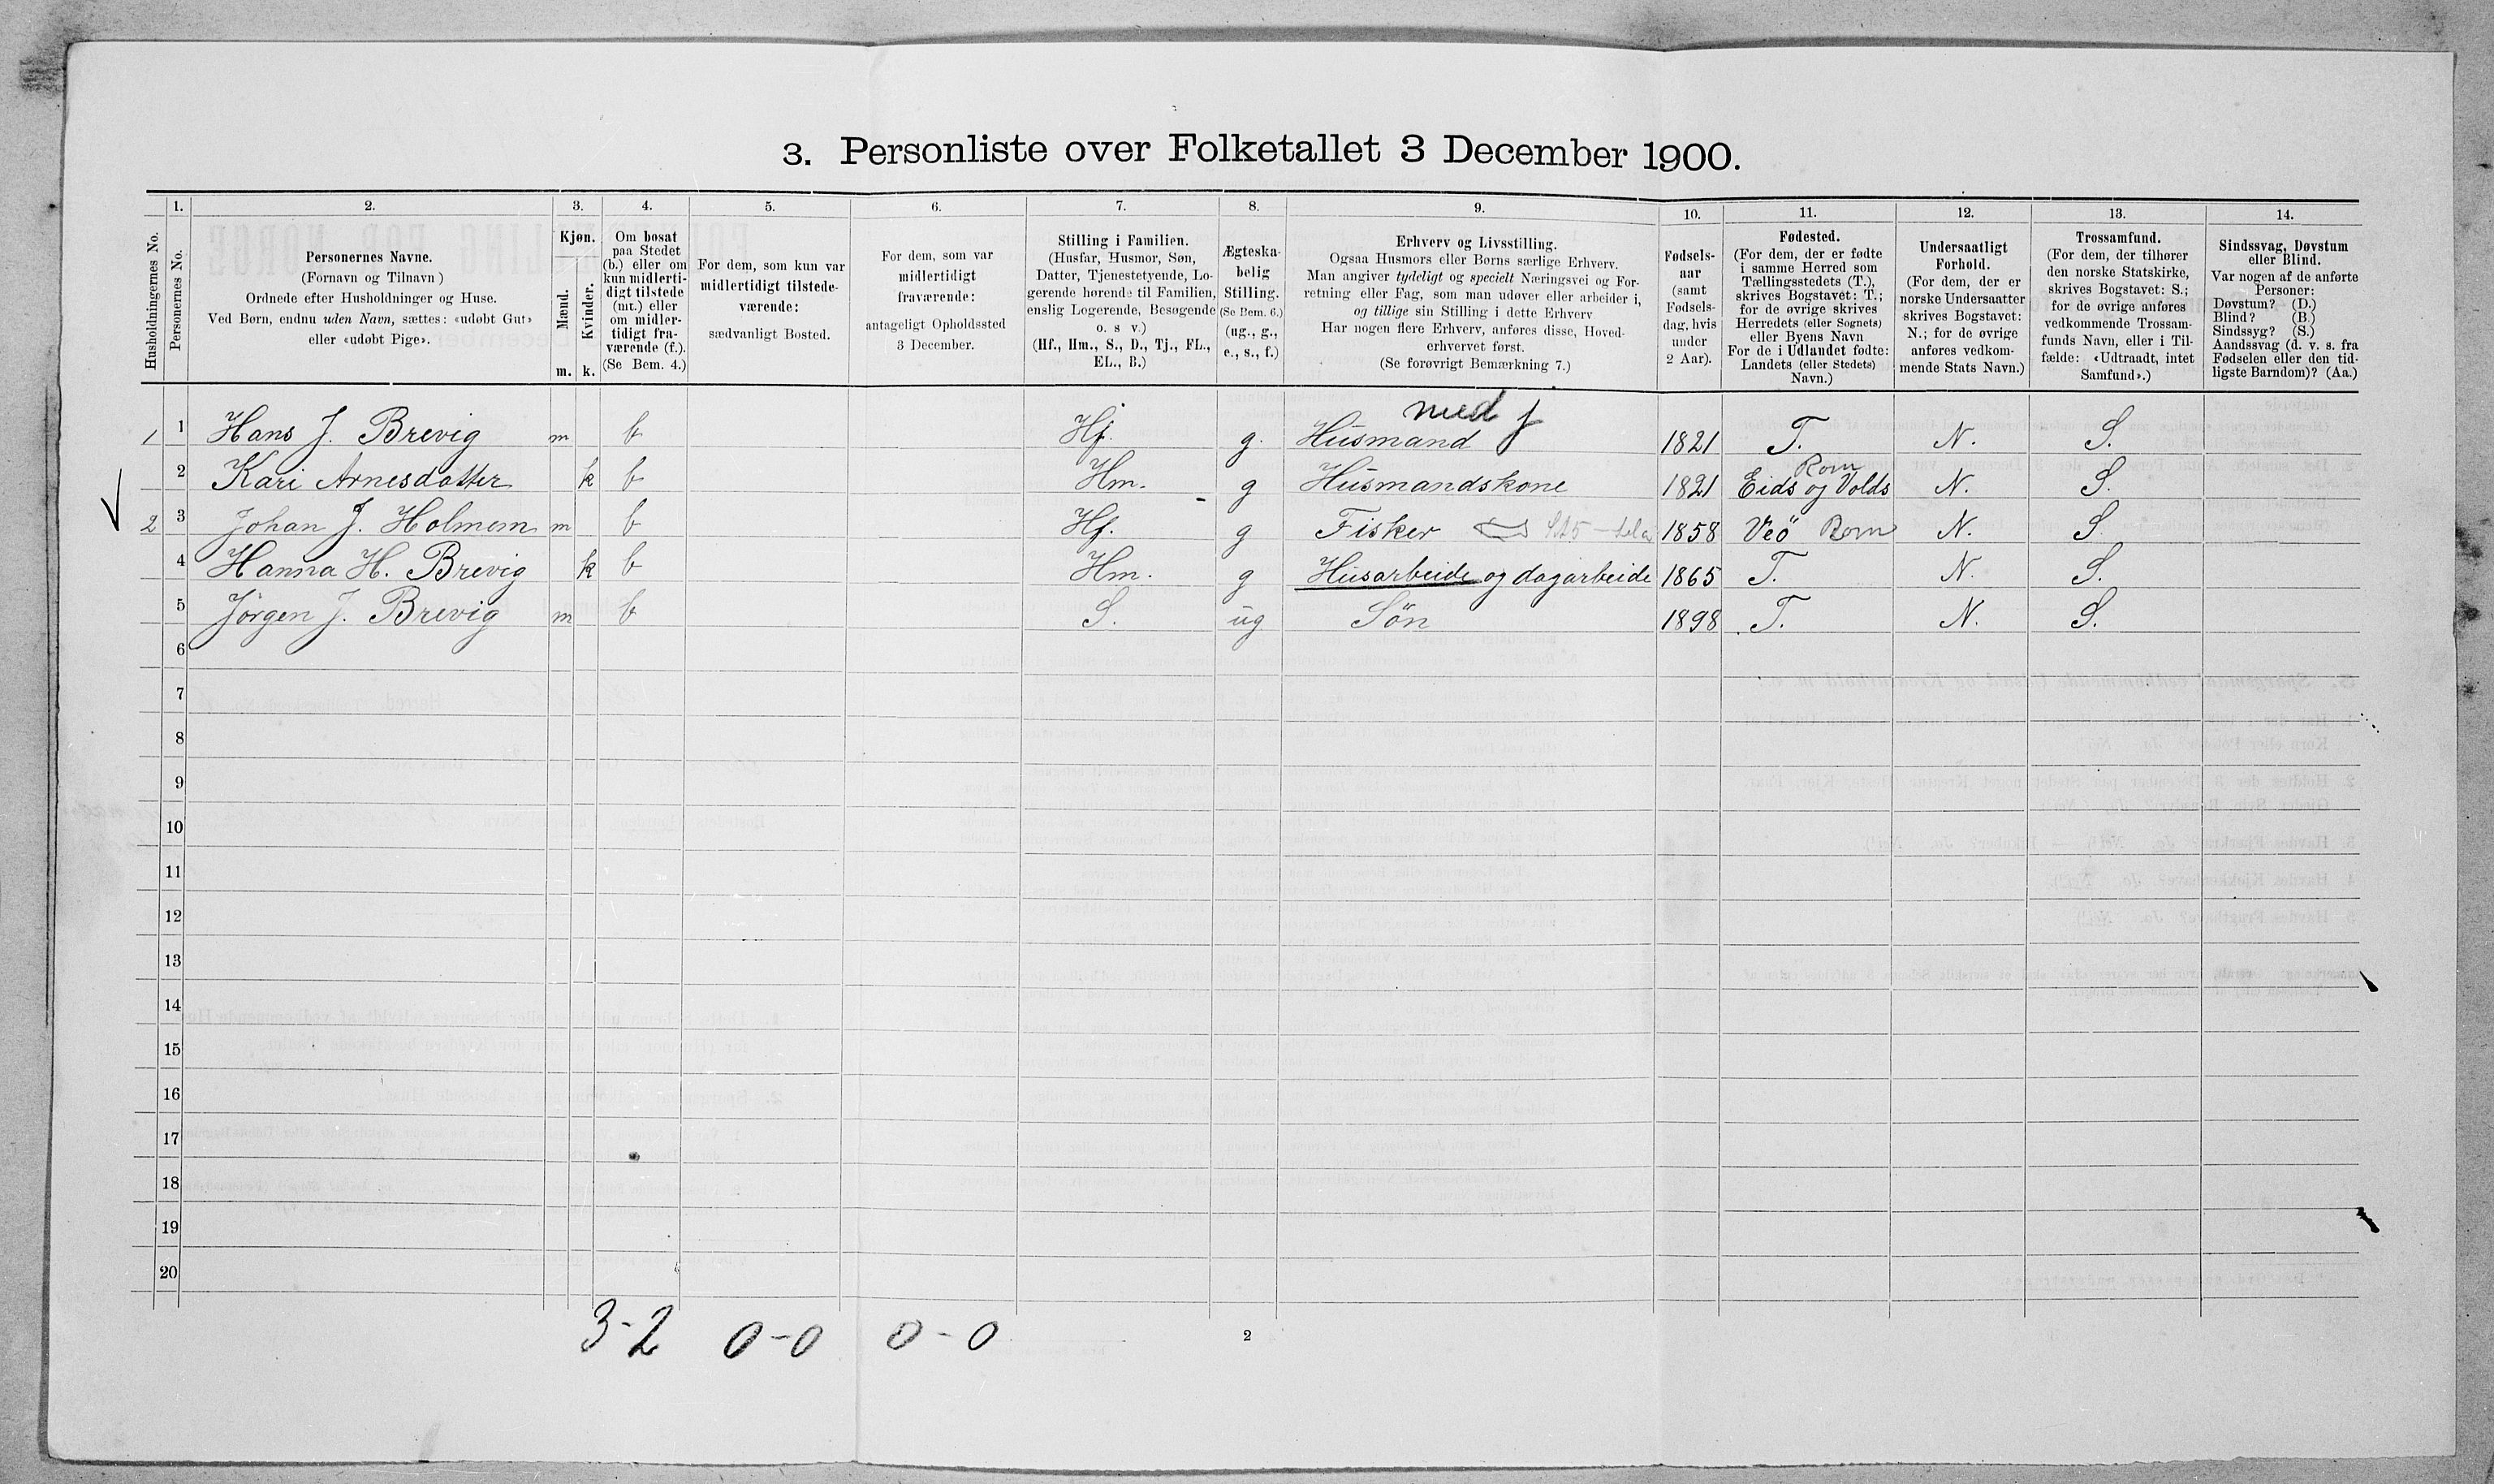 3. Personliste over Folketallet 3 December 1900.
Husholdningernes No.
1.
Personernes No.
2.
Personernes Navne.
(Fornavn og Tilnavn)
Ordnede efter Husholdninger og Huse.
Ved Børn, endnu uden Navn, sættes: «udøbt Gut»
eller «udøbt Pige».
3.
Kjøn.
Mænd.
Kvinder.
m. k.
4.
Om bosat
paa Stedet
(b.) eller om
kun midlerti-
digt tilstede
(mt.) eller
om midler-
tidigt fra-
værende (f.).
(Se Bem. 4.)
5.
For dem, som kun var
midlertidigt tilstede-
værende:
sædvanligt Bosted.
6.
For dem, som var
midlertidigt
fraværende:
antageligt Opholdssted
3 December.
7.
Stilling i Familien.
(Husfar, Husmor, Søn,
Datter, Tjenestetyende, Lo-
gerende hørende til Familien,
enslig Logerende, Besøgende
o. s v.)
(Hf., Hm., S., D., Tj., FL.,
EL., B.)
8.
Ægteska-
belig
Stilling.
(Se Bem. 6.)
(ug., g.,
e., s., f.)
9.
Erhverv og Livsstilling.
Ogsaa Husmors eller Børns særlige Erhverv.
Man angiver tydeligt og specielt Næringsvei og For-
retning eller Fag, som man udøver eller arbeider i,
og tillige sin Stilling i dette Erhverv
Har nogen flere Erhverv, anføres disse, Hoved-
erhvervet først.
(Se forøvrigt Bemærkning 7.)
10.
Fødsels-
aar
(samt
Fødsels-
dag, hvis
under
2 Aar).
11.
Fødested.
(For dem, der er fødte
i samme Herred som
Tællingsstedets (T.),
skrives Bogstavet: T.;
for de øvrige skrives
Herredets (eller Sognets)
eller Byens Navn
For de i Udlandet fødte:
Landets (eller Stedets)
Navn.)
12.
Undersaatligt
Forhold.
(For dem, der er
norske Undersaatter
skrives Bogstavet:
N.; for de øvrige
anføres vedkom-
mende Stats Navn.)
13.
Trossamfund.
(For dem, der tilhører
den norske Statskirke,
skrives Bogstavet: S.;
for de øvrige anføres
vedkommende Trossam-
funds Navn, eller i Til-
fælde: «Udtraadt, intet
Samfund».)
14.
Sindssvag, Døvstum
eller Blind.
Var nogen af de anførte
Personer:
Døvstum? (D.)
Blind? (B.)
Sindssyg? (S.)
Aandssvag (d. v. s. fra
Fødselen eller den tid-
ligste Barndom)? (Aa.)
med j
1 1 Hans J. Brevig m b Hf. g. Husmand 1821 T. N. S.
Rom
2 Kari Arnesdatter k b Hm. g Husmandskone 1821 Eids og Volds N. S.
2 3 Johan J. Holmem m b Hf. g Fisker 1858 Veö Rom N. S.
4 Hanna H. Brevig k b Hm. g Husarbeide og dagarbeide 1865 T. N. S.
5 Jörgen J. Brevig m b S. ug Sön 1898 T. N. S.
6
7
8
9
10
11
12
13
14
15
16
17
18
19
20
3-2 0-0 0-0
2